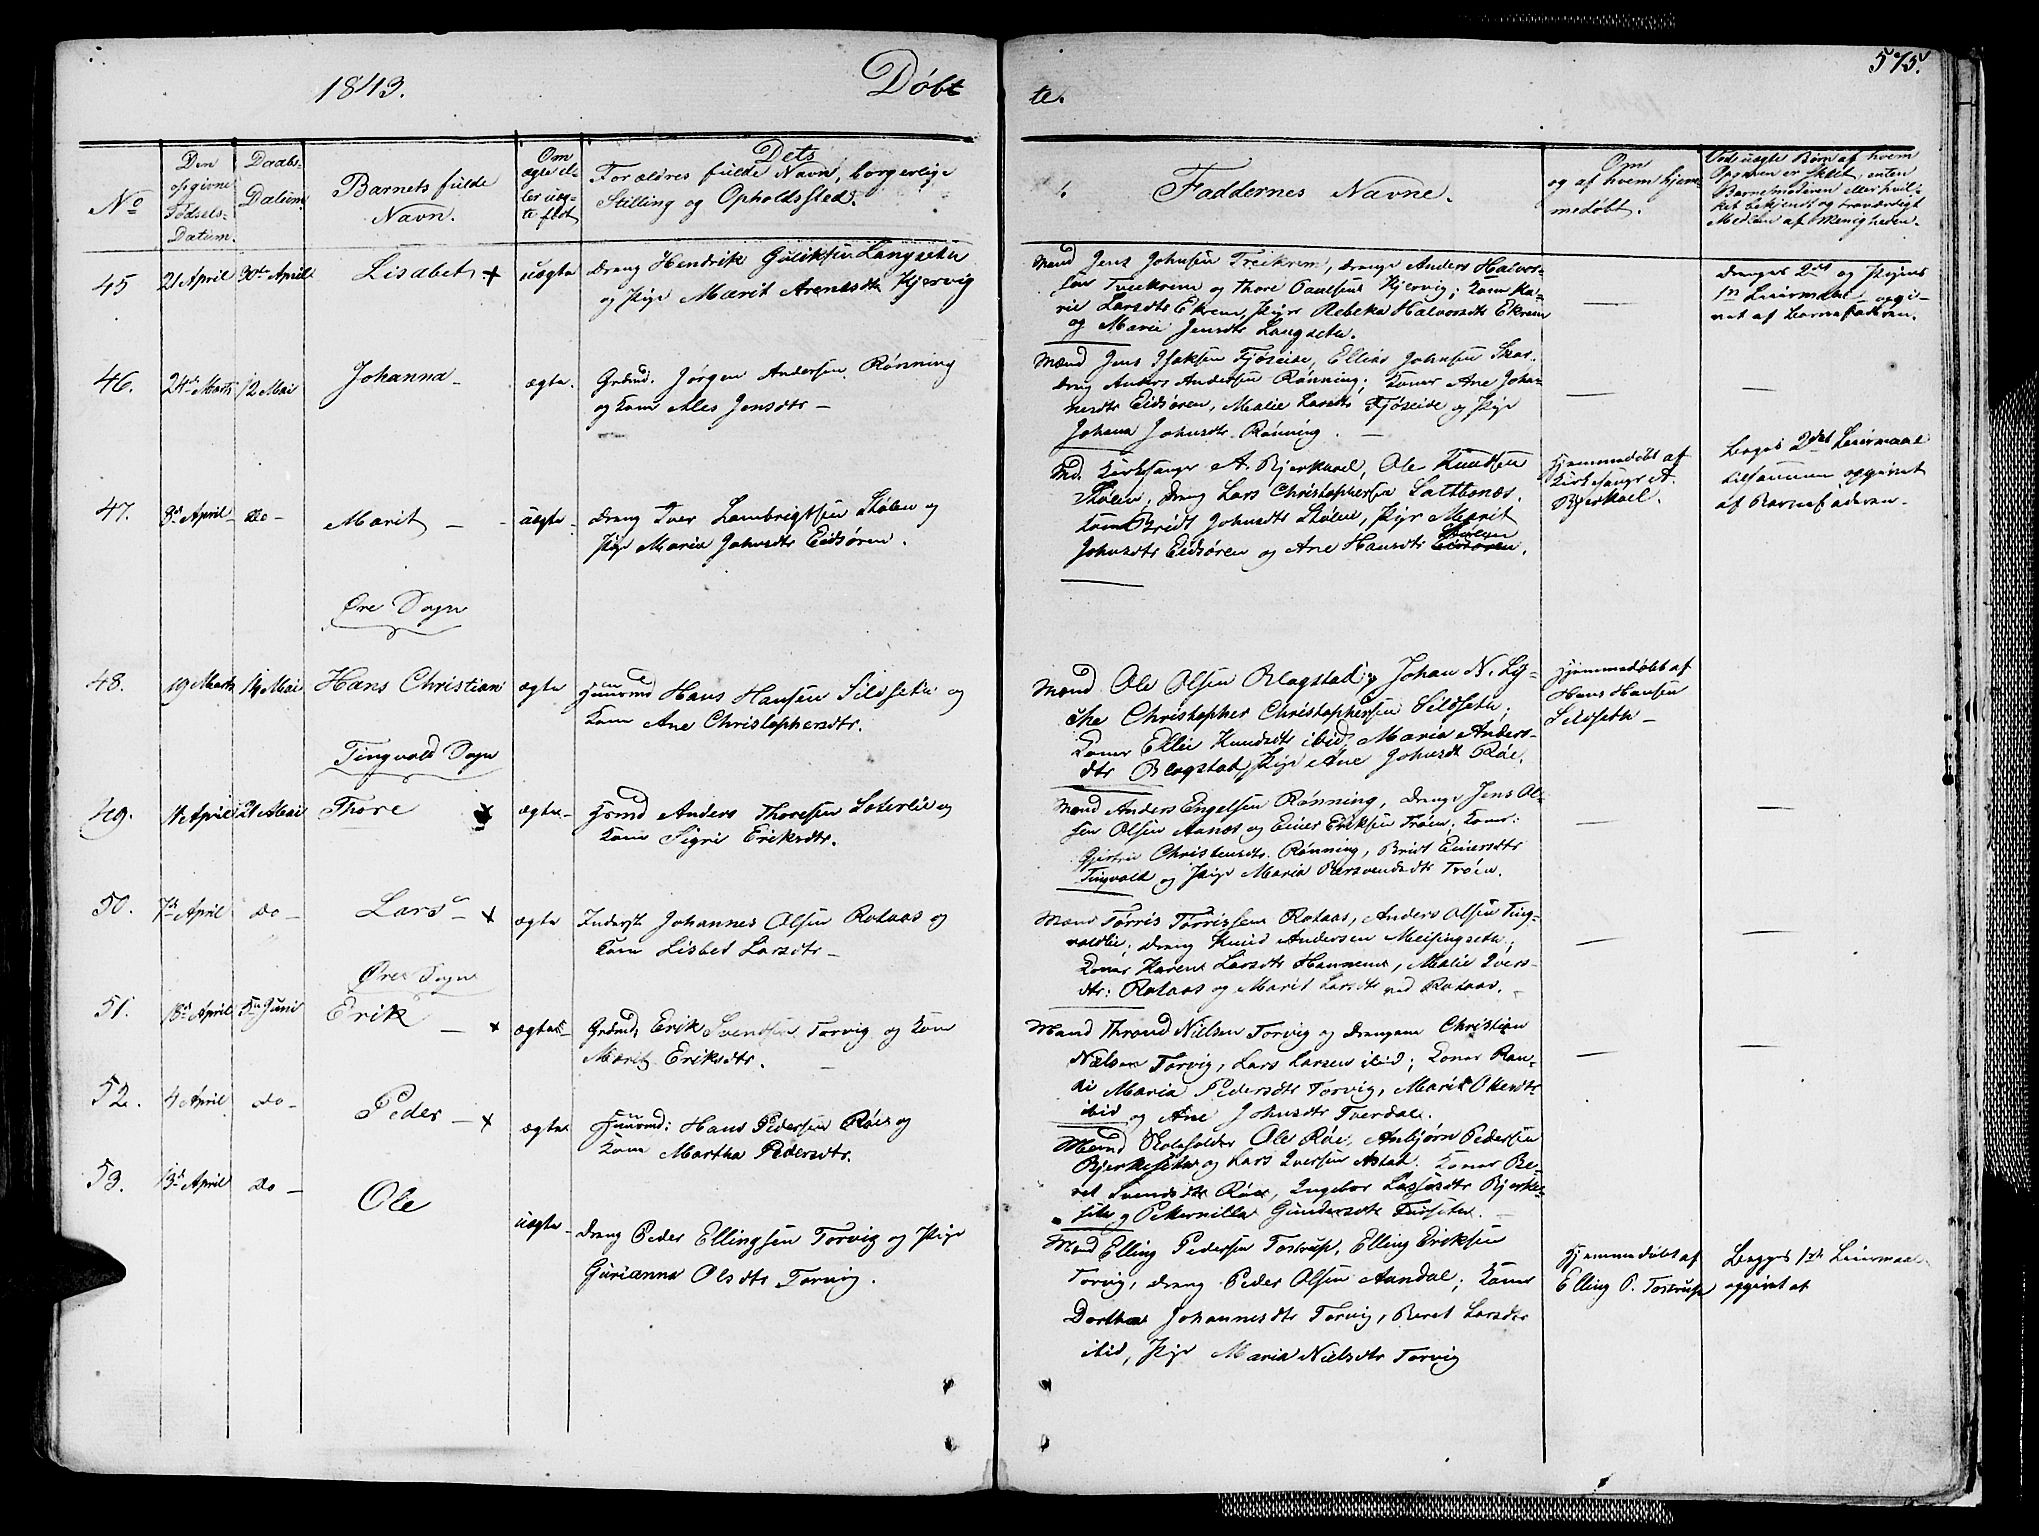 1843.
Døbte.
575.
No
Den opgivne Fødsels-Datum.
Daabs-Datum
Barnets fulde Navn.
Om ægte eller uægte født
Dets Forældres fulde Navn, borgerlige Stilling og Opholdssted.
Faddernes Navne.
Om og af hvem hjemmedøbt.
Ved uægte Børn af hvem Opgaven er skeet, enten Barnemoderen eller hvilket bekjendt og troværdigt Medlem af Menigheden.
45
21 April
30te April
Lisabet +
uægte
Dreng Hendrik Guliksen Langseth
og Pige Marit Arentsdtr Kjervig
Mand Jens Johnsen Treekrem, Drenge Anders Halvor-
sen Treekrem og Thore Paulsen Kjervig; Kone Ka-
ri Larsdtr Ekrem, Piger Rebeka Halvorsdtr Ekrem
og Marie Jensdtr Langseth.
Drenges 2det og Pigens
1te Leiermaal, opgi-
vet af Barnefaderen.
46.
24de Marts
12 Mai
Johanna
ægte
Grdmd. Jørgen Andersen Rønning
og Kone Ales Jensdtr
Mænd Jens Isaksen Fjøseide, Elling Johnsen
Dreng Anders Andersen Rønning; Koner Ane Johan-
nesdtr Eidsøren, Malie Larsdtr Fjøseide og Pige
Johana Johnsdtr Rønning.
47.
8de April
do
Marit
uægte
Dreng Iver Lambrigtsen Stølen og
Pige Maria Johnsdtr Eidsøren.
Md. Kirkesanger A. Bjerkael, Ole Knudsen
Stølen, Dreng Lars Christophersen Saltbones.
Kone Bridt Johnsdtr Stølen, Piger Marit
Johnsdtr Eidsøren og Ane Hansdtr Stølen.
Hjemmedøbt af
Kirkesanger A.
Bjerkael.
Beges 2det Leiermaal
tilsammen opgivet
af Barnefaderen.
Øre Sogn
48.
19 Marts
14 Mai
Hans Christian
ægte
Huusmd Hans Hansen Sildseth og
Kone Ane Christophersdtr.
Mænd Ole Olsen Blagstad, Johan N. Ly-
che Christopher Christophersen Sildseth;
Koner Elli Knudsdtr ibid, Maria Anders-
dtr Blagstad, Pige Ane Johnsdt Røe.
Hjemmedøbt af
Hans Hansen
Sildseth
Tingvold Sogn
49.
14 April
21 Mai
Thore
ægte
Grmd Anders Thoresen Saterlie og
Kone Sigri Eriksdtr.
Mand Anders Engelsen Rønning, Drenge Jens Ol-
sen Olsen Aanes og Einer Eriksen Trøen; Koner:
Gjertru Christensdtr Rønning, Bridt Einersdtr
Tingvold og Pige Maria Rasvendsdtr Trøen.
50.
7de April
do
Lars +
ægte
Inderst Johannes Olsen Rotaas og
Kone Lisbet Larsdtr
Mand Tørris Tørrissen Rotaas, Anders Olsen Ting-
voldlie; Dreng Knud Andersen Meisingseth;
Koner Karen Larsdtr Hannemo, Malie Ivers-
dtr: Rotaas og Marit Larsdtr ved Rotaas.
Øre Sogn
51.
18de April
5te Juni
Erik +
ægte
Grdmd Erik Svendsen Torvig og Kone
Marit Eriksdtr.
Mænd Thrond Nielsen Torvig og Drengene Christian
Nielsen Torvig, Lars Larsen ibid; Koner Ran-
di Maria Pedersdtr Torvig, Marit Olsendtr
ibid og Ane Johnsdtr Tverdal.
52.
4 April
do
Peder +
ægte
Huusmd: Hans Pedersen Røe og
Kone Martha Pedersdtr.
Mænd Skoleholder Ole Røe, Anbjørn Pedersen
Bjerkesetre og Lars Iversen Astad. Koner Be-
ret Svendsdtr Røe, Ingebor Lassesdtr Bjerke-
sete og Pekernilla Gundersdtr Furseth.
53.
13de April
do
Ole
uægte
Dreng Peder Ellingsen Torvig og Pige
Gurianna Olsdtr Torvig.
Mand Elling Pedersen Tostrup, Elling Eriksen
Torvig, Dreng Peder Olsen Aandal; Koner
Dorthea Johannesdtr Torvig, Beret Larsdtr
ibid, Pige Maria Nielsdtr Torvig
Hjemmedøbt af
Elling P. Tostrup
Begges 1te Leiermaal
opgivet af